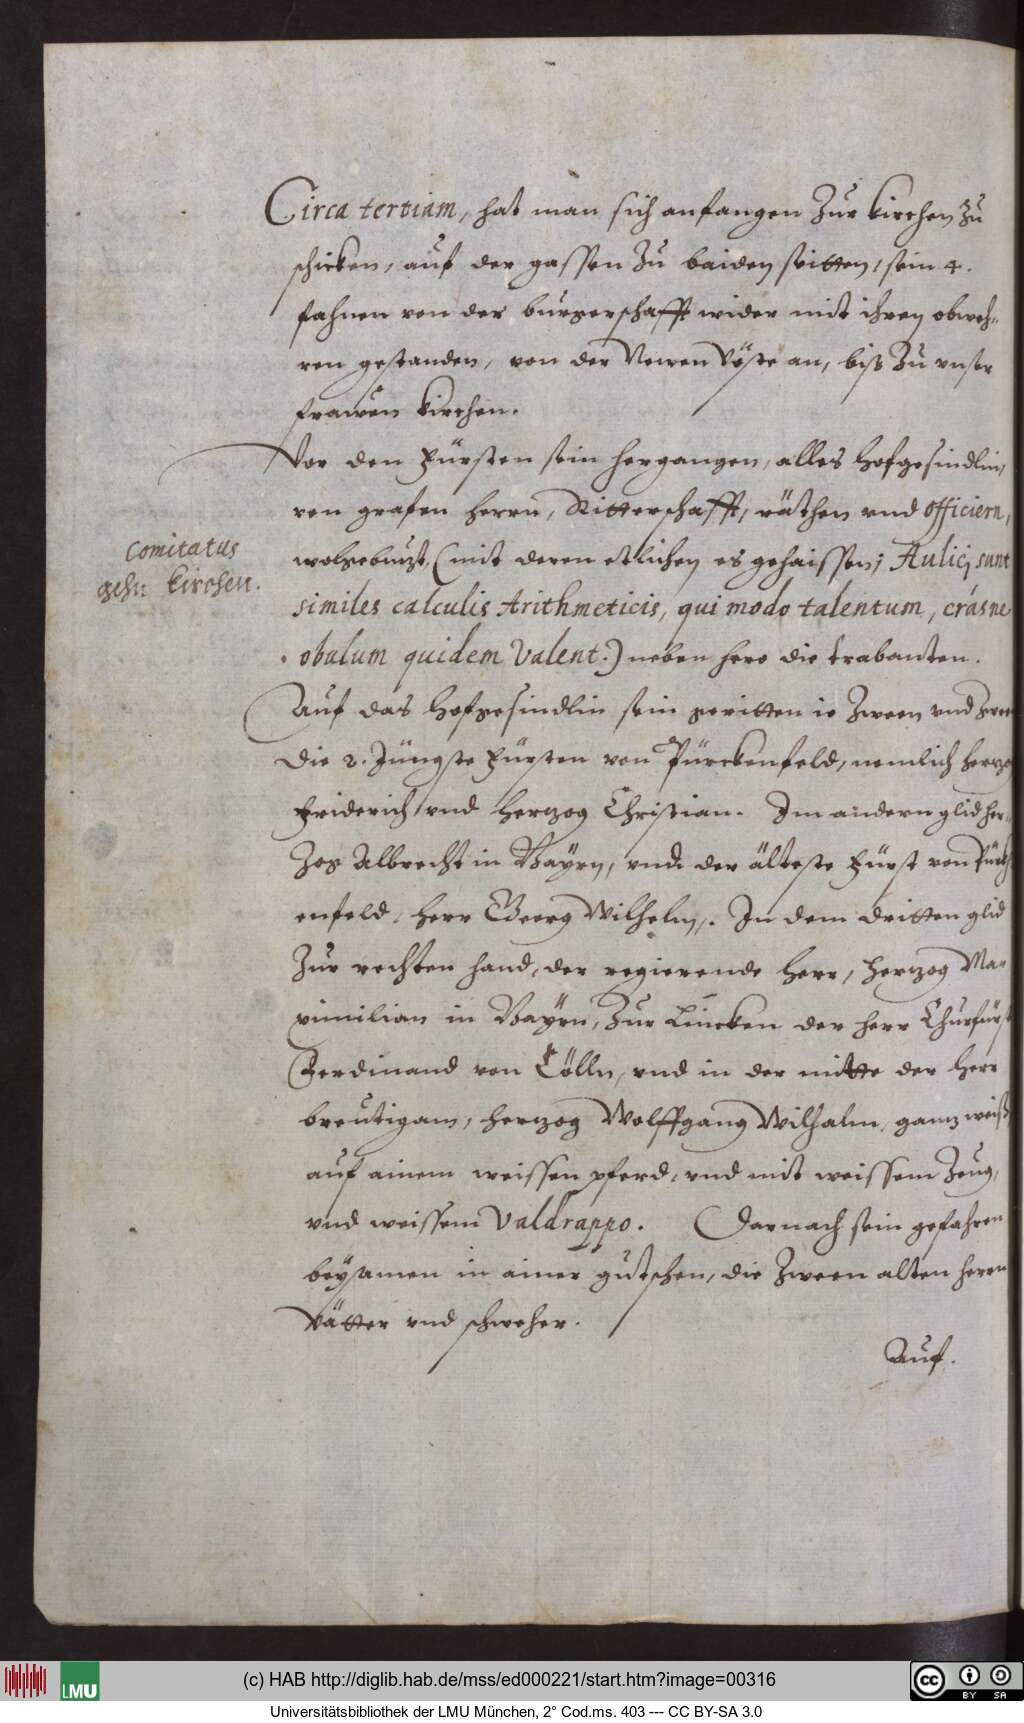 Circa tertiam, hat man sich anfangen Zur kirchen zu
schicken, auf der gassen Zu baiden seitten, sein 4.
fahnen von der burgerschafft wider mit ihren obweh-
ren gestanden, von der Newen Vöste an, biß Zu unser
frawen kirchen.
Vor den Fürsten sein hergangen, alles Hofgesindlin,
von grafen herrn, Ritterschafft, räthen und Officiern,
comitatus
gehn kirchen.
wolgebutzt, (mit deren etlichen es gehaissen; Aulici sunt
similes calculis Arithmeticis, qui modo talentum, cras ne
obulum quidem Valent.) neben hero die trabanten.
Auf das Hofgesindlin sein geritten ie Zween und Zween
die 2. Jüngste Fürsten von Pürckenfeld, nemlich herzog
Friderich und hertzog Christian. Im andern glid her-
Zog Albrecht in Bayrn, und der älteste Fürst von Pürck
enfeld, herr Georg Wilhelm. In dem dritten glid
Zur rechten hand, der regierende herr, hertzog Ma-
ximilian in Bayrn, Zur Lincken der herr Churfürst
Ferdinand von Cölln, und in der mitte der Herr
breutigam, hertzog Wolffgang Wilhalm, gantz weiß,
auf ainem weissen pferd, und mit weissem Zeug,
und weissem Valdrappo. Darnach sein gefahren
beysamen in ainer gutschen, die Zween alten herrn
Vätter und schweher.
Auf.
LMU
(c) HAB http://diglib.hab.de/mss/ed000221/start.htm?image=00316
cc BY SA
Universitätsbibliothek der LMU München, 2° Cod.ms. 403 --- CC BY-SA 3.0